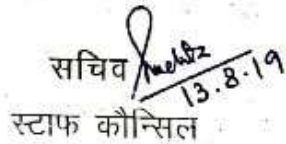 सचिव
13.8.19
स्टाफ कौन्सिल